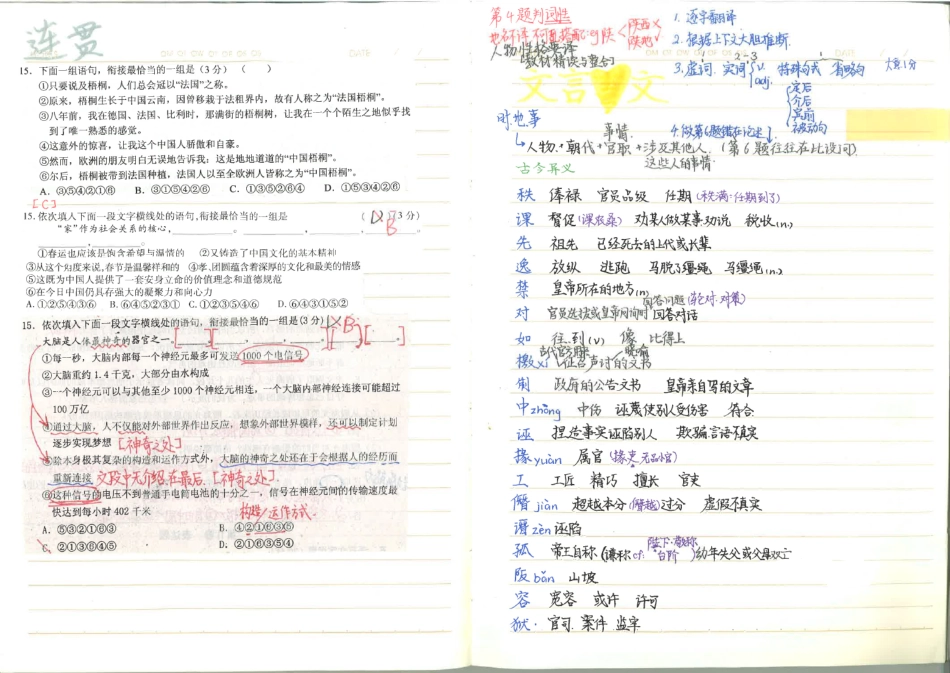 连贯
15. 下面一组语句，衔接最恰当的一组是(3分) （　　）
①只要说及梧桐，人们总会冠以“法国”之称。
②原来，梧桐生长于中国云南，因曾移栽于法租界内，故有人称之为“法国梧桐”。
③八年前，我在德国、法国、比利时，那满街的梧桐树，让我在一个个陌生之地似乎找
到了唯一熟悉的感觉。
④这意外的惊喜，让我这个中国人骄傲和自豪。
⑤然而，欧洲的朋友明白无误地告诉我：这是地地道道的“中国梧桐”。
⑥尔后，梧桐被带到法国种植，法国人以至全欧洲人皆称之为“中国梧桐”。
A．③⑤④②①⑥　B．③①⑤④②⑥　C．①③⑤②⑥④　D．①⑤③④②⑥
[C]
15. 依次填入下面一段文字横线处的语句,衔接最恰当的一组是 （　　）(3分)
B
“家”作为社会关系的核心,
①春运也应该是饱含希望与温情的　②又铸造了中国文化的基本精神
③从这个角度来说,春节是温馨祥和的　④孝、团圆蕴含着深厚的文化和最美的情感
⑤这既为中国人提供了一套安身立命的价值理念和道德规范
⑥在今日中国仍具存强大的凝聚力和向心力
A.①②⑤④③⑥　B.⑥④⑤②③①　C.①②③⑤④⑥　D.⑥④③①⑤②
15．依次填入下面一段文字横线处的语句，衔接最恰当的一组是(3分)
B
大脑是人体最神奇的器官之一。
①每一秒，大脑内部每一个神经元最多可发送1000个电信号
②大脑重约1.4千克，大部分由水构成
③一个神经元可以与其他至少1000个神经元相连，一个大脑内部神经连接可能超过
100万亿
④通过大脑，人不仅能对外部世界作出反应，想象外部世界模样，还可以制定计划
逐步实现梦想 [神奇之处]
⑤除本身极其复杂的构造和运作方式外，大脑的神奇之处还在于会根据人的经历而
重新连接 文段中无介绍,在最后. [神奇之处]
⑥这种信号的电压不到普通手电筒电池的十分之一，信号在神经元间的传输速度最
快达到每小时402千米
构造/运作方式
A．⑤③②①⑥③　B．④②①⑥③⑤
C．②①③⑥④⑤　D．②①⑥③⑤④
第4题判词性
地名不译 不可直接配 eg 陕
陕西×
陕地√
人物性格要译
[教材精读与整合]
1. 逐字翻译
2. 根据上下文大胆推断.
3. 虚词. 实词 v. adj. 特殊句式 省略句 大意1分
定后
介后
宾前
被动句
文言文
时.地.事
事情.
4. 做第6题错在论述
人物.+朝代+官职+涉及其他人.(第6题往往在此设问)
这些人的事情
古今异义
秩 俸禄 官员品级 任期 (秩满:任期到了)
课 督促(课农桑) 劝某人做某事.劝说 税收(n.)
先 祖先 已经死去的上代或长辈
逸 放纵 逃跑 马脱了缰绳 马缰绳(n.)
禁 皇帝所在的地方(n.)
回答问题 (轮对.对策)
对 回答对话
如 往.到(v) 像 比得上
檄xí 征召声讨的文书
制 政府的公告文书 皇帝亲自写的文章
中zhòng 中伤 诬蔑使别人受伤害 符合
诬 捏造事实诬陷别人 欺骗言语不真实
掾yuàn 属官 (掾吏:无品小官)
工 工匠 精巧 擅长 官吏
僭jiàn 超越本分(僭越)过分 虚假不真实
谮zèn 诬陷
陛下:敬称
孤 帝王自称 (谦称 cf: ) 幼年失父或父母双亡
阪bǎn 山坡
容 宽容 或许 许可
狱. 官司. 案件. 监牢